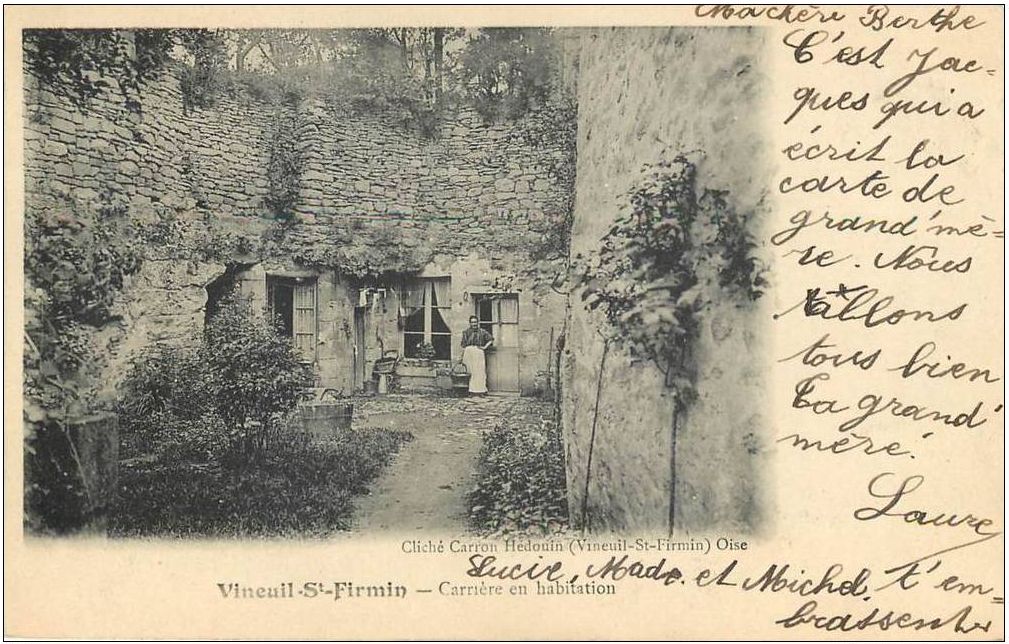 Ma chère Berthe
C'est Jac-
ques qui a
écrit la
carte de
grand'mè-
re. Nous
allons
tous bien
ta grand'
mère.
Laure
Lucie, Made et Michel, t'em-
brassent
Cliché Carron Hédouin (Vineuil-St-Firmin) Oise
Vineuil-St-Firmin — Carrière en habitation